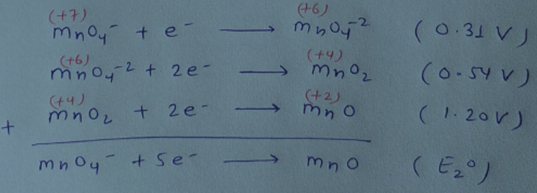 (+7) (+6)
mnO₄⁻ + e⁻ ⟶ mnO₄⁻² (0.31 V)
(+6) (+4)
mnO₄⁻² + 2e⁻ ⟶ mnO₂ (0.54 V)
(+4) (+2)
+ mnO₂ + 2e⁻ ⟶ mnO (1.20V)
mnO₄⁻ + 5e⁻ ⟶ mnO (E₂⁰)